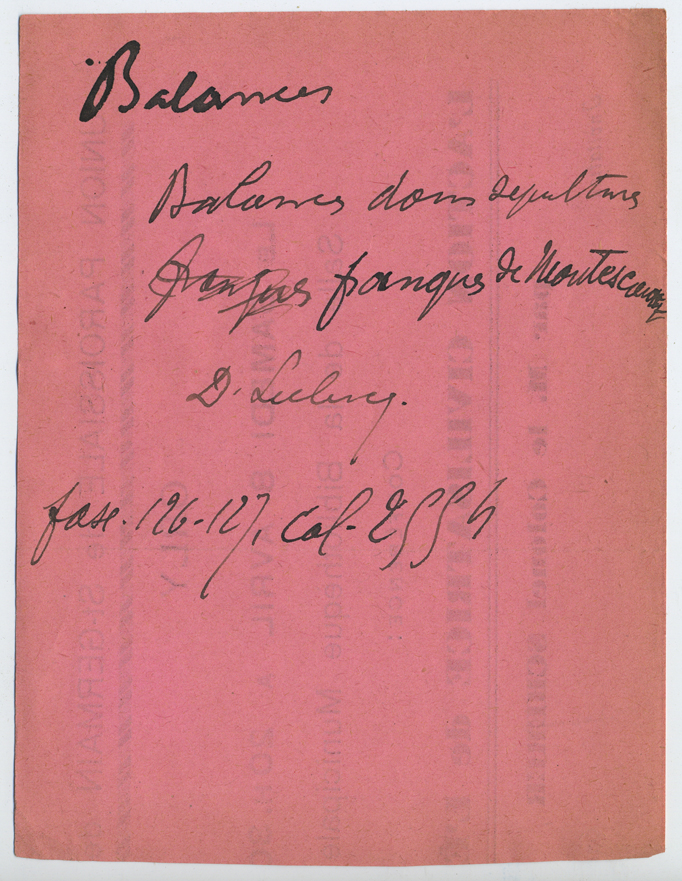 Balances
Balances dans sépultures
franques franques de Montescourt
D. Leclercq.
fasc. 126-127, col. 2554